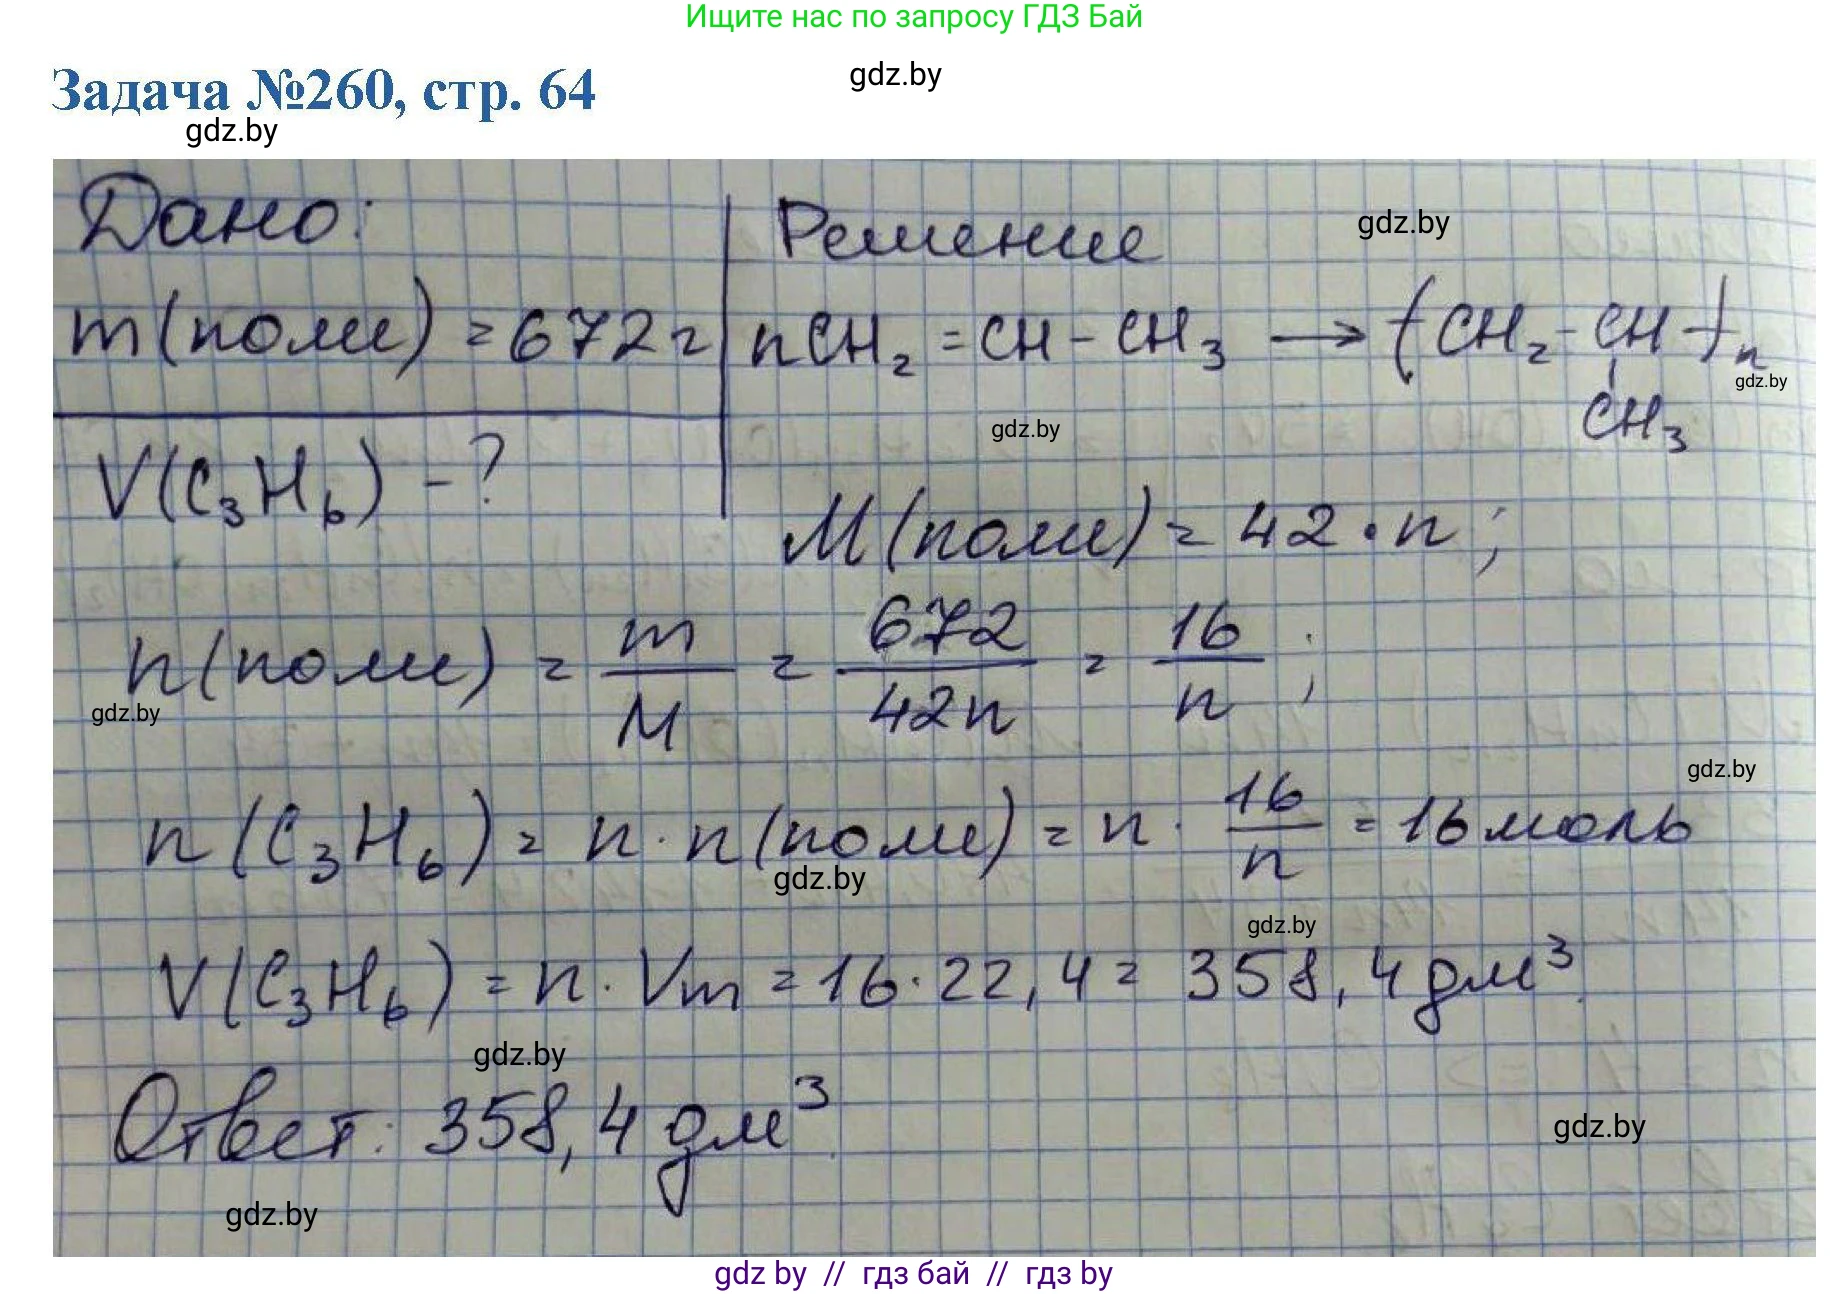 Ищите нас по запросу ГДЗ Бай
Задача №260, стр. 64
gdz.by
gdz.by
Дано:
Решение
gdz.by
m(поли) = 672 г
nCH₂ = CH – CH₃ → (– CH₂ – CH –)n
gdz.by
CH₃
gdz.by
V(C₃H₆) – ?
M(поли) = 42 · n ;
n(поли) = m/M = 672/42n = 16/n ;
gdz.by
gdz.by
n(C₃H₆) = n · n(поли) = n · 16/n = 16 моль
gdz.by
gdz.by
V(C₃H₆) = n · Vm = 16 · 22,4 = 358,4 дм³.
gdz.by
Ответ: 358,4 дм³.
gdz.by
gdz.by
gdz by // гдз бай // гдз by